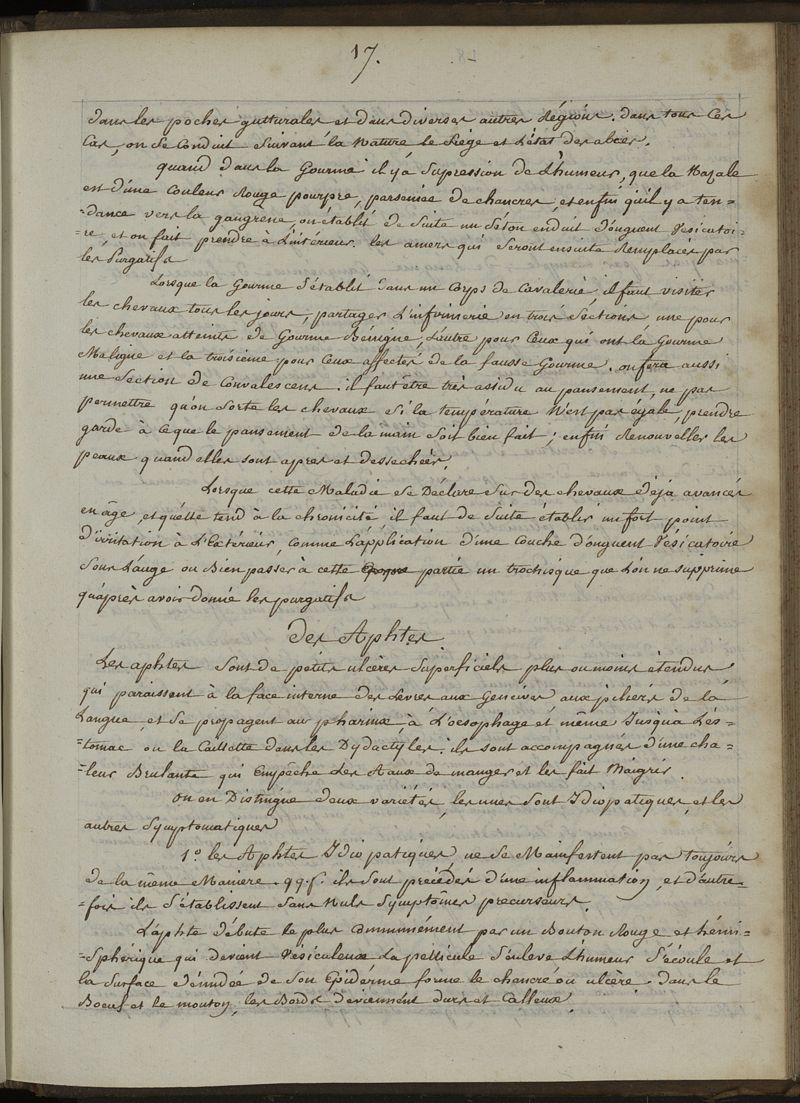 17.
dans les poches gutturales et dans diverses autres régions. dans tous ces
cas, on se conduit suivant la nature le siège et l'état des abcès.
quand dans la Gourme il y a supression de l'humeur, que la Nazale
est d'une couleur Rouge pourpre, parsemée de chancres, et enfin qu'il y a ten-
-dance vers la gangrene, on établit de suite un séton enduit d'onguent vésicatoi-
-re, et on fait prendre à l'intérieur les amers qui seront ensuite remplacés par
les Purgatifs
Lorsque la Gourme s'établit dans un Corps de Cavalerie, il faut visiter
les chevaux tous les jours, partager l'infirmerie en trois sections, une pour
les chevaux atteints de Gourme Bénigne, l'autre pour Ceux qui ont la Gourme
Maligne et la troisième pour Ceux affectés de la fausse Gourme. on fera aussi
une section de Convalescens: il faut être très assidu au pansement, ne pas
permettre qu'on sorte les chevaux si la température n'est pas egale, prendre
garde à ce que le pansement de la main soit bien fait; enfin Renouveller les
peaux quand elles sont apres et dessechées.
Lorsque cette Maladie se Déclare sur des chevaux déjà avancés
en âge, et qu'elle tend à la chronicité, il faut de suite établir un fort point
d'irritation à l'Extérieur, comme l'application d'une couche d'onguent vésicatoire
sous l'auge ou Bien passer à cette partie un trochisque que l'on ne supprime
qu'après avoir donné les purgatifs
Des Aphtes
Les aphtes sont de petits ulcères superficiels plus ou moins étendus
qui paraissent à la face interne des Levres aux Gencives aux piliers de la
Langue, et se propagent au pharinx, à l'oesophage et même Jusqu'à l'és-
-tomac ou la Caillette dans les Dydactyles: ils sont accompagnés d'une cha-
-leur Brulante qui Empêche les Aaux de manger et les fait Maigrir
on en Distingue deux variétés, les unes sont Idiopatiques, et les
autres Symptomatiques
1º les Aphtes Idiopatiques, ne se Manifestent pas toujours
de la même Maniere. qq.f. ils sont précédés d'une inflammation, et d'autre-
-fois ils s'établissent sans nuls symptômes précurseurs.
L'aphte débute le plus communément par un Bouton Rouge et hémi-
-sphérique qui devient vésiculeux la pellicule s'enleve l'humeur s'écoule et
la surface dénudée de son Epiderme forme le chancre ou ulcère. Dans le
Boeuf et le mouton, les Bords deviennent durs et Calleux